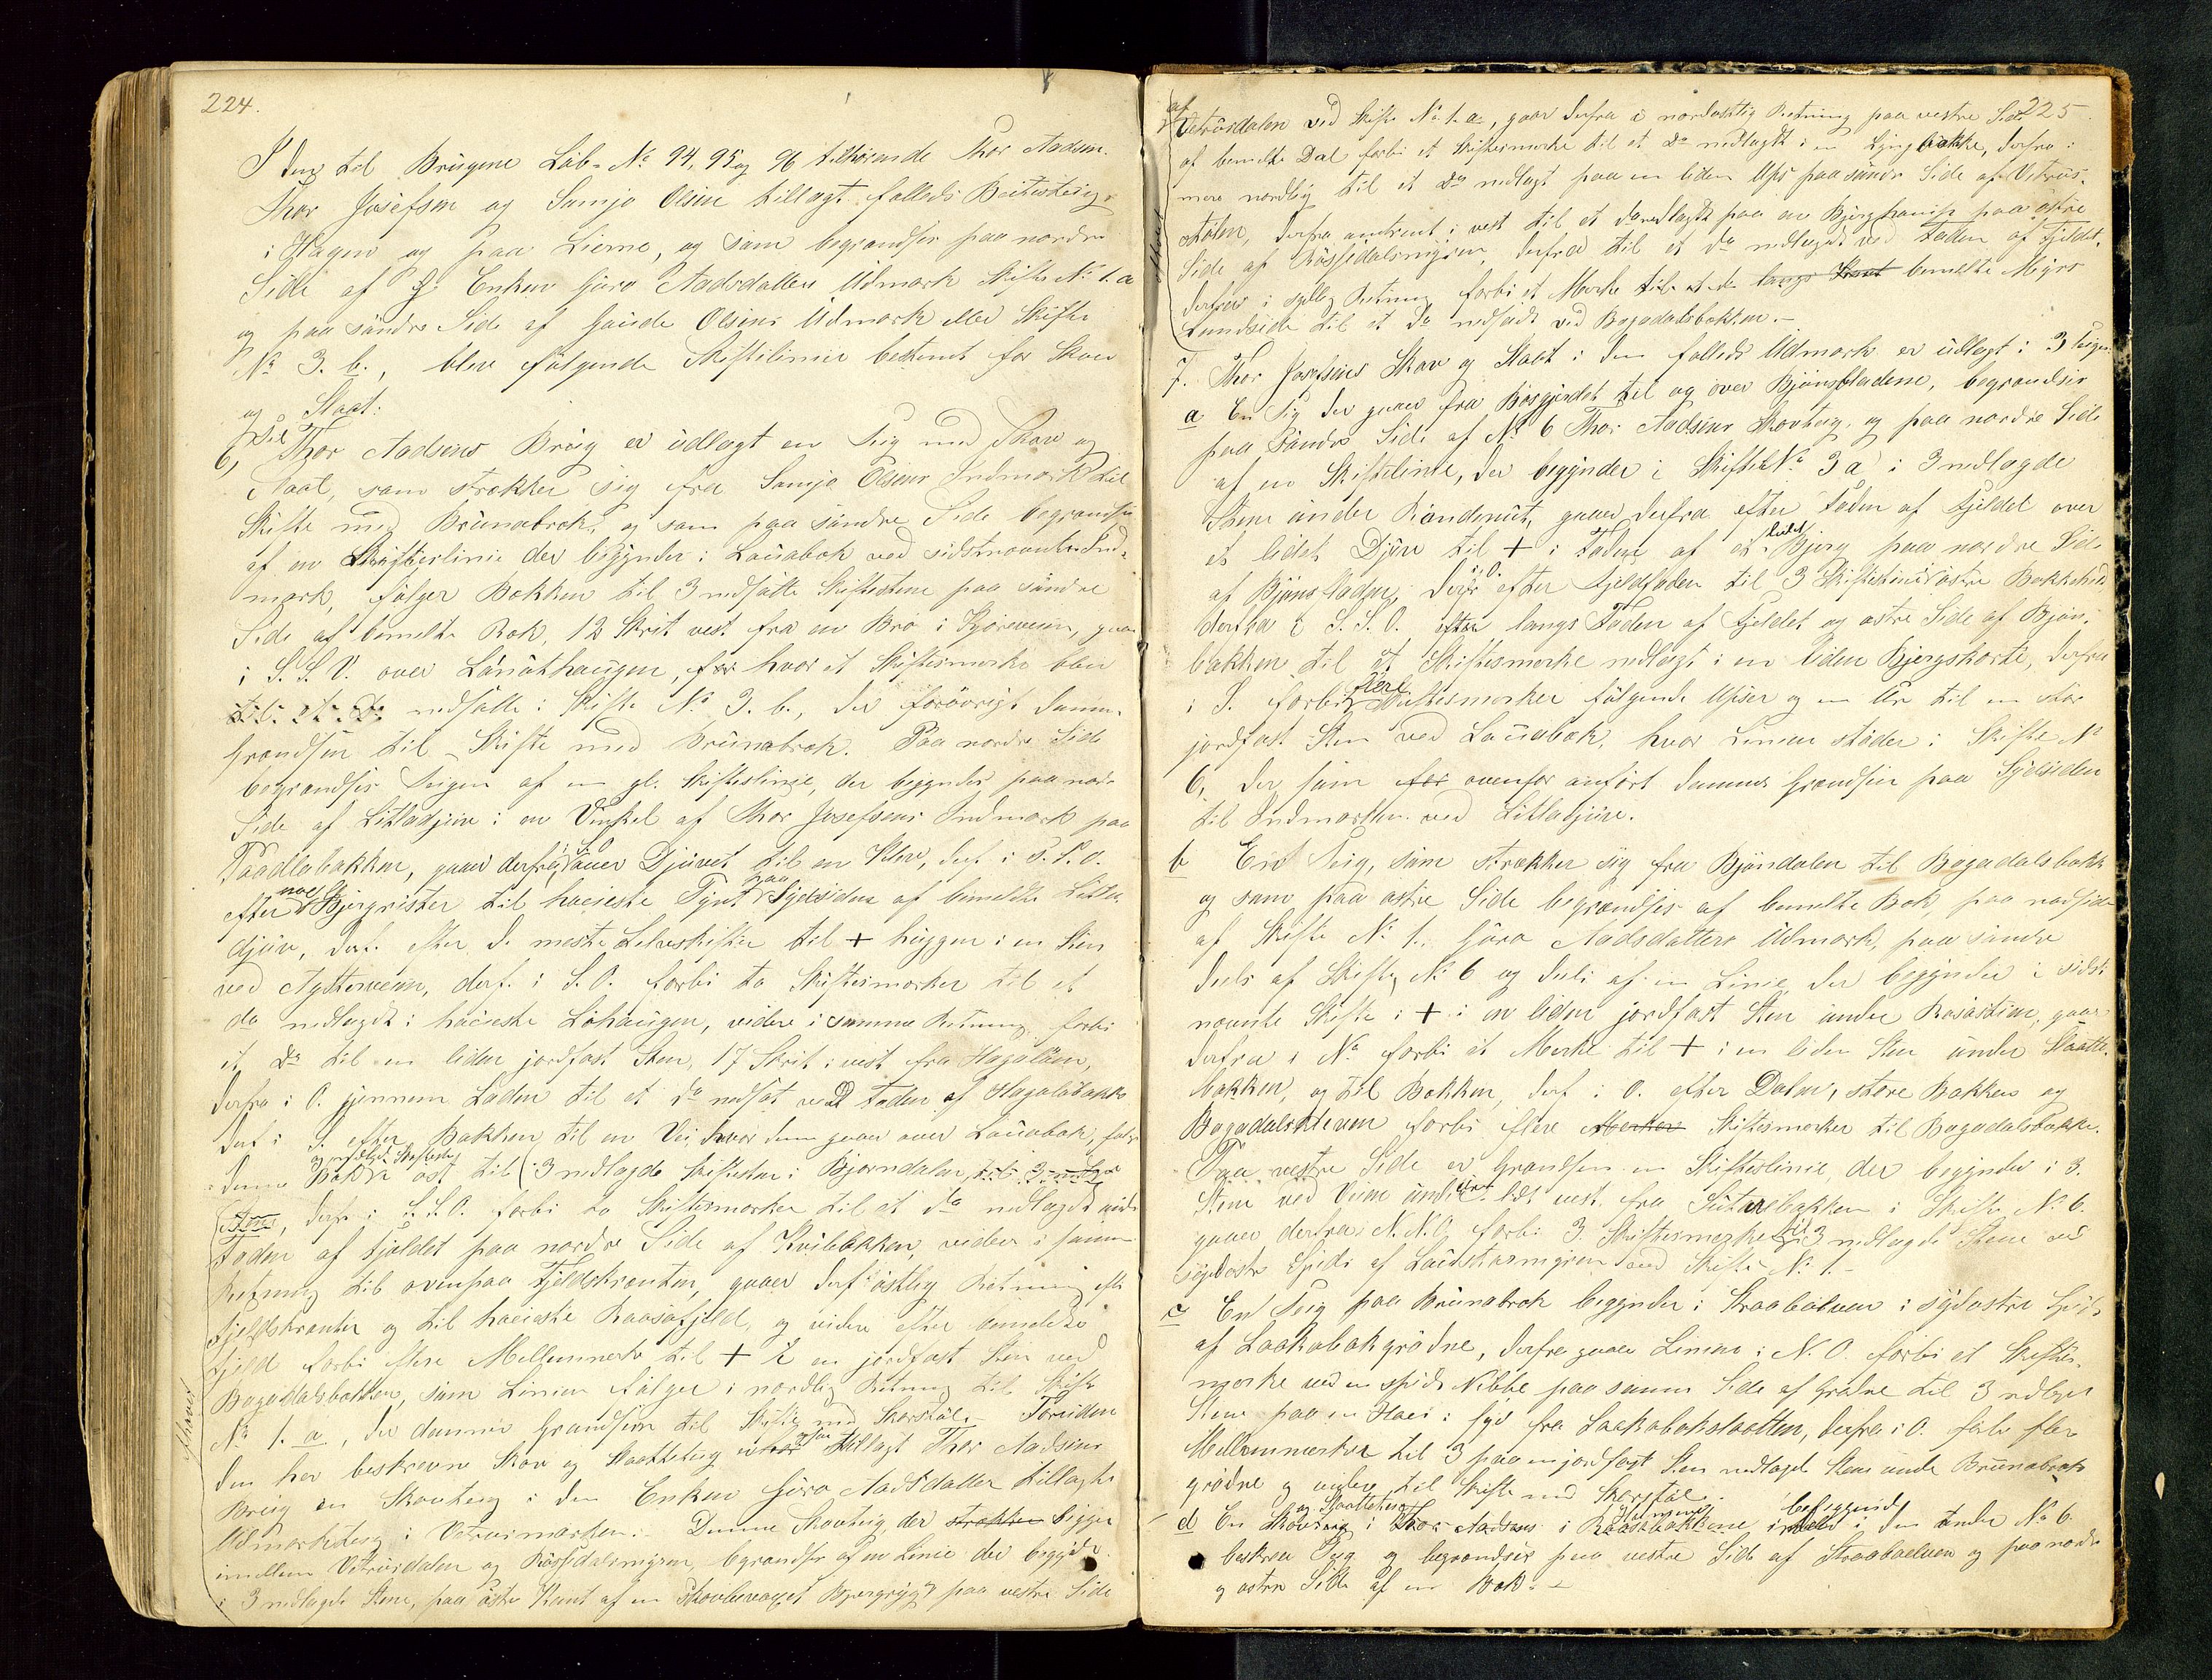 224.
I den til Brugene Løb-No 94, 95 og 96 tilhørende Thor Aadsen
Thor Josefsen og Samjo Olsen tillagt fælleds Beitesteig
i Hagen og paa Lierne, og som begrændses paa nordre
Side af Enken Gjøro Aadsdatters Udmark Skifte No 1. a
og paa søndre Side af Gaude Olsens Udmark eller Skifte
No 3. b., blev følgende Skiftelinier bestemt for Skov
og Slaat:
6, Til Thor Aadsens Brug er udlagt en Teig med Skov og
Slaat, som strækker sig fra Samjo Olsens Indmark til
Skifte med Brunabrok, og som paa søndre Side begrændses
af en Skifteslinie der begynder i Lauabæk ved sidstnævnte Ind-
mark, følger Bækken til 3 nedsatte Skiftestene paa søndre
Side af bemelte Bæk, 12 Skrit vest fra en Bro i Kjøreveien, gaar
i S. S. V. over Lønuthaugen, hvor et Skiftesmærke blev
nedsatte i Skifte No 3. b., der forøvrigt danner
Grændsen til Skifte med Brunabrok. Paa nordre Side
begrændses Teigen af en gl. Skifteslinie, der begynder paa nor-
Side af Litladjuve i en Vinkel af Thor Josefsens Indmark paa
bakken, gaaer derfra i S.O. over Djuvet til en Klev, derf. i S. S. O.
efter nogle Bjergrister til høieste Tynt paa Sydsiden af bemeldte Litla
djuv, derf. efter de meste til + huggen i en Sten
ved, derf. i S. O. forbi to Skiftesmærker til et
do nedlagt i høieste Løhaugen, videre i samme Retning forbi
et Do til en liden jordfast Sten, 17 Skrit i vest fra Hagaløen,
derfra i O. gjennem Laden til et do nedsat ved Foden af Hagaløbakk
derf. i S. efter Bakken til en Vei hvor den gaaer over Lauabæk, følger
denne Bæk øst til 3 nedlagde Skiftestene i Bjørndalen
derfr. i S. S. O. forbi to Skiftesmærker til et do nedlagt ved
Foden af Fjeldet paa nordre Side af Kvilebakken, videre i samme
Retning til ovenpaa Fjeldskranten, gaaer derf. i østlig Retning efter
Fjeldskranten og til høieste Raasafjeld, og videre efter bemeldte
Fjeld forbi flere Mellemmærker til + i en jordfast Sten ved
Bagadalsbækken, som Linien følger i nordlig Retning til Skifte
No 1. a, der danner Grændsen til Skifte med Skarstøl. Foruden
den her beskrevne Skov og Slaatteteig tillagt Thor Aadsens
Brug en Skovteig i den Enken Gjøro Aadsdatter tillagte
Udmarksteig i Vetrusmarken. Denne Skovteig, der strækker ligger
imellem Vetrusdalen og Røssedalsmyren, begrændses af en Linie der begynder
i 3 nedlagde Stene, paa østre Kant af en Skovbevoxet Bjergrygg paa vestre Side
225
af Vetrusdalen ved Skifte No 1. a, gaar derfra i nordostlig Retning paa vestre Side
af bemelte Dal forbi et Skiftesmærke til et Do nedlagt i en Lyngbakke, derfra i
mere nordlig til et do nedlagt paa en liden Ups paa søndr Side af Vetrus-
stølen, derfra omtrent i vest til et do nedlagt paa en Bjerghamp paa østre
Side af Røssedalsmyren, derfra til et do nedlagt ved Foden af Fjeldet,
derfra i sydlig Retning forbi et Mærke til et do langs Kant bemelte Myrs
Landside til et Do nedsadt ved Bagadalsbækken.-
7. Thor Josefsens Skov og Slaat i den fælleds Udmark er udlagt i 3 Teige
a En Teig der gaaer fra Bøsgjerdet til og over Bjønsfladene, begrændses
paa søndre Side af No 6 Thor Aadsens Skovteig, og paa nordre Side
af en Skiftelinie, der begynder i Skifte No 3 a i 3 nedlagde
Stene under Randenut, gaaer derfra efter Foden af Fjeldet over
et lidet Djuv til + i Foden af et lidet Bjerg paa nordre Side
af Bjønsfladen, derfra i S.O. efter Fjeldfoden til 3 Skiftestene i østre Bakkeheld,
derfra i S. S. O. efter langs Foden af Fjeldet og østre Side af Bjøn-
bakken til et Skiftesmærke nedlagt i en liden Bjergskorte, derfra
i S. forbi flere Skiftesmærker følgende Upser og en Ur til en stor
jordfast Sten ved Lauabæk, hvor Linien støder i Skifte No
6, der som for ovenfor anført danner Grændsen paa Sydsiden
til Indmarken ved Litladjuve.
b En Teig, som strækker sig fra Bjøndalen til Bagadalsbækk
og som paa østre Side begrændses af bemelte Bæk, paa nordside
af Skifte No 1. Gjøro Aadsdatters Udmark, paa søndre
deels af Skifte No 6 og deels af en Linie der begynder i sidst
nævnte Skifte i + i en liden jordfast Sten under, gaar
derfra i No. forbi et Mærke til + i en liden Sten under Slaatte-
bakken, og til Bækken, derf. i O. efter Dalen, store Bakken og
Bagadalskleven forbi flere Mærker Skiftesmærker til Bagadalsbækken.
Paa vestre Side er Grændsen en Skifteslinie, der begynder i 3
Stene ved Veien under vest fra bakken i Skifte No 6.
gaaer derfra i N. N. O. forbi 3 Skiftesmærker til 3 nedlagde Stene ved
sydøstr Side af Laudskarmyren ved Skifte No 1.-
c En Teig paa Brunabrok begynder i Straabækken i sydøstre Hjør
af Laakabækgrødne, derfra gaaer Linien i N. O. forbi et Skiftes-
mærke ved en spids Nibbe paa samme Side af Grødne til 3 nedlagte
Stene paa en Hau i Syd fra Laakabækslaatten, derfra i O. forbi flere
Mellemmærker til 3 paa en jordfast Sten nedlagte Stene under Brunabrok-
grødne og videre til Skifte med Skarstøl.
d En Skovteig og Slaatteteig i Thor Aadsens i Raasabakkene beliggende i den under No 6
beskrevne Teig og begrændses paa vestre Side af Straabækken og paa nordre
og østre Side af en Bæk.-